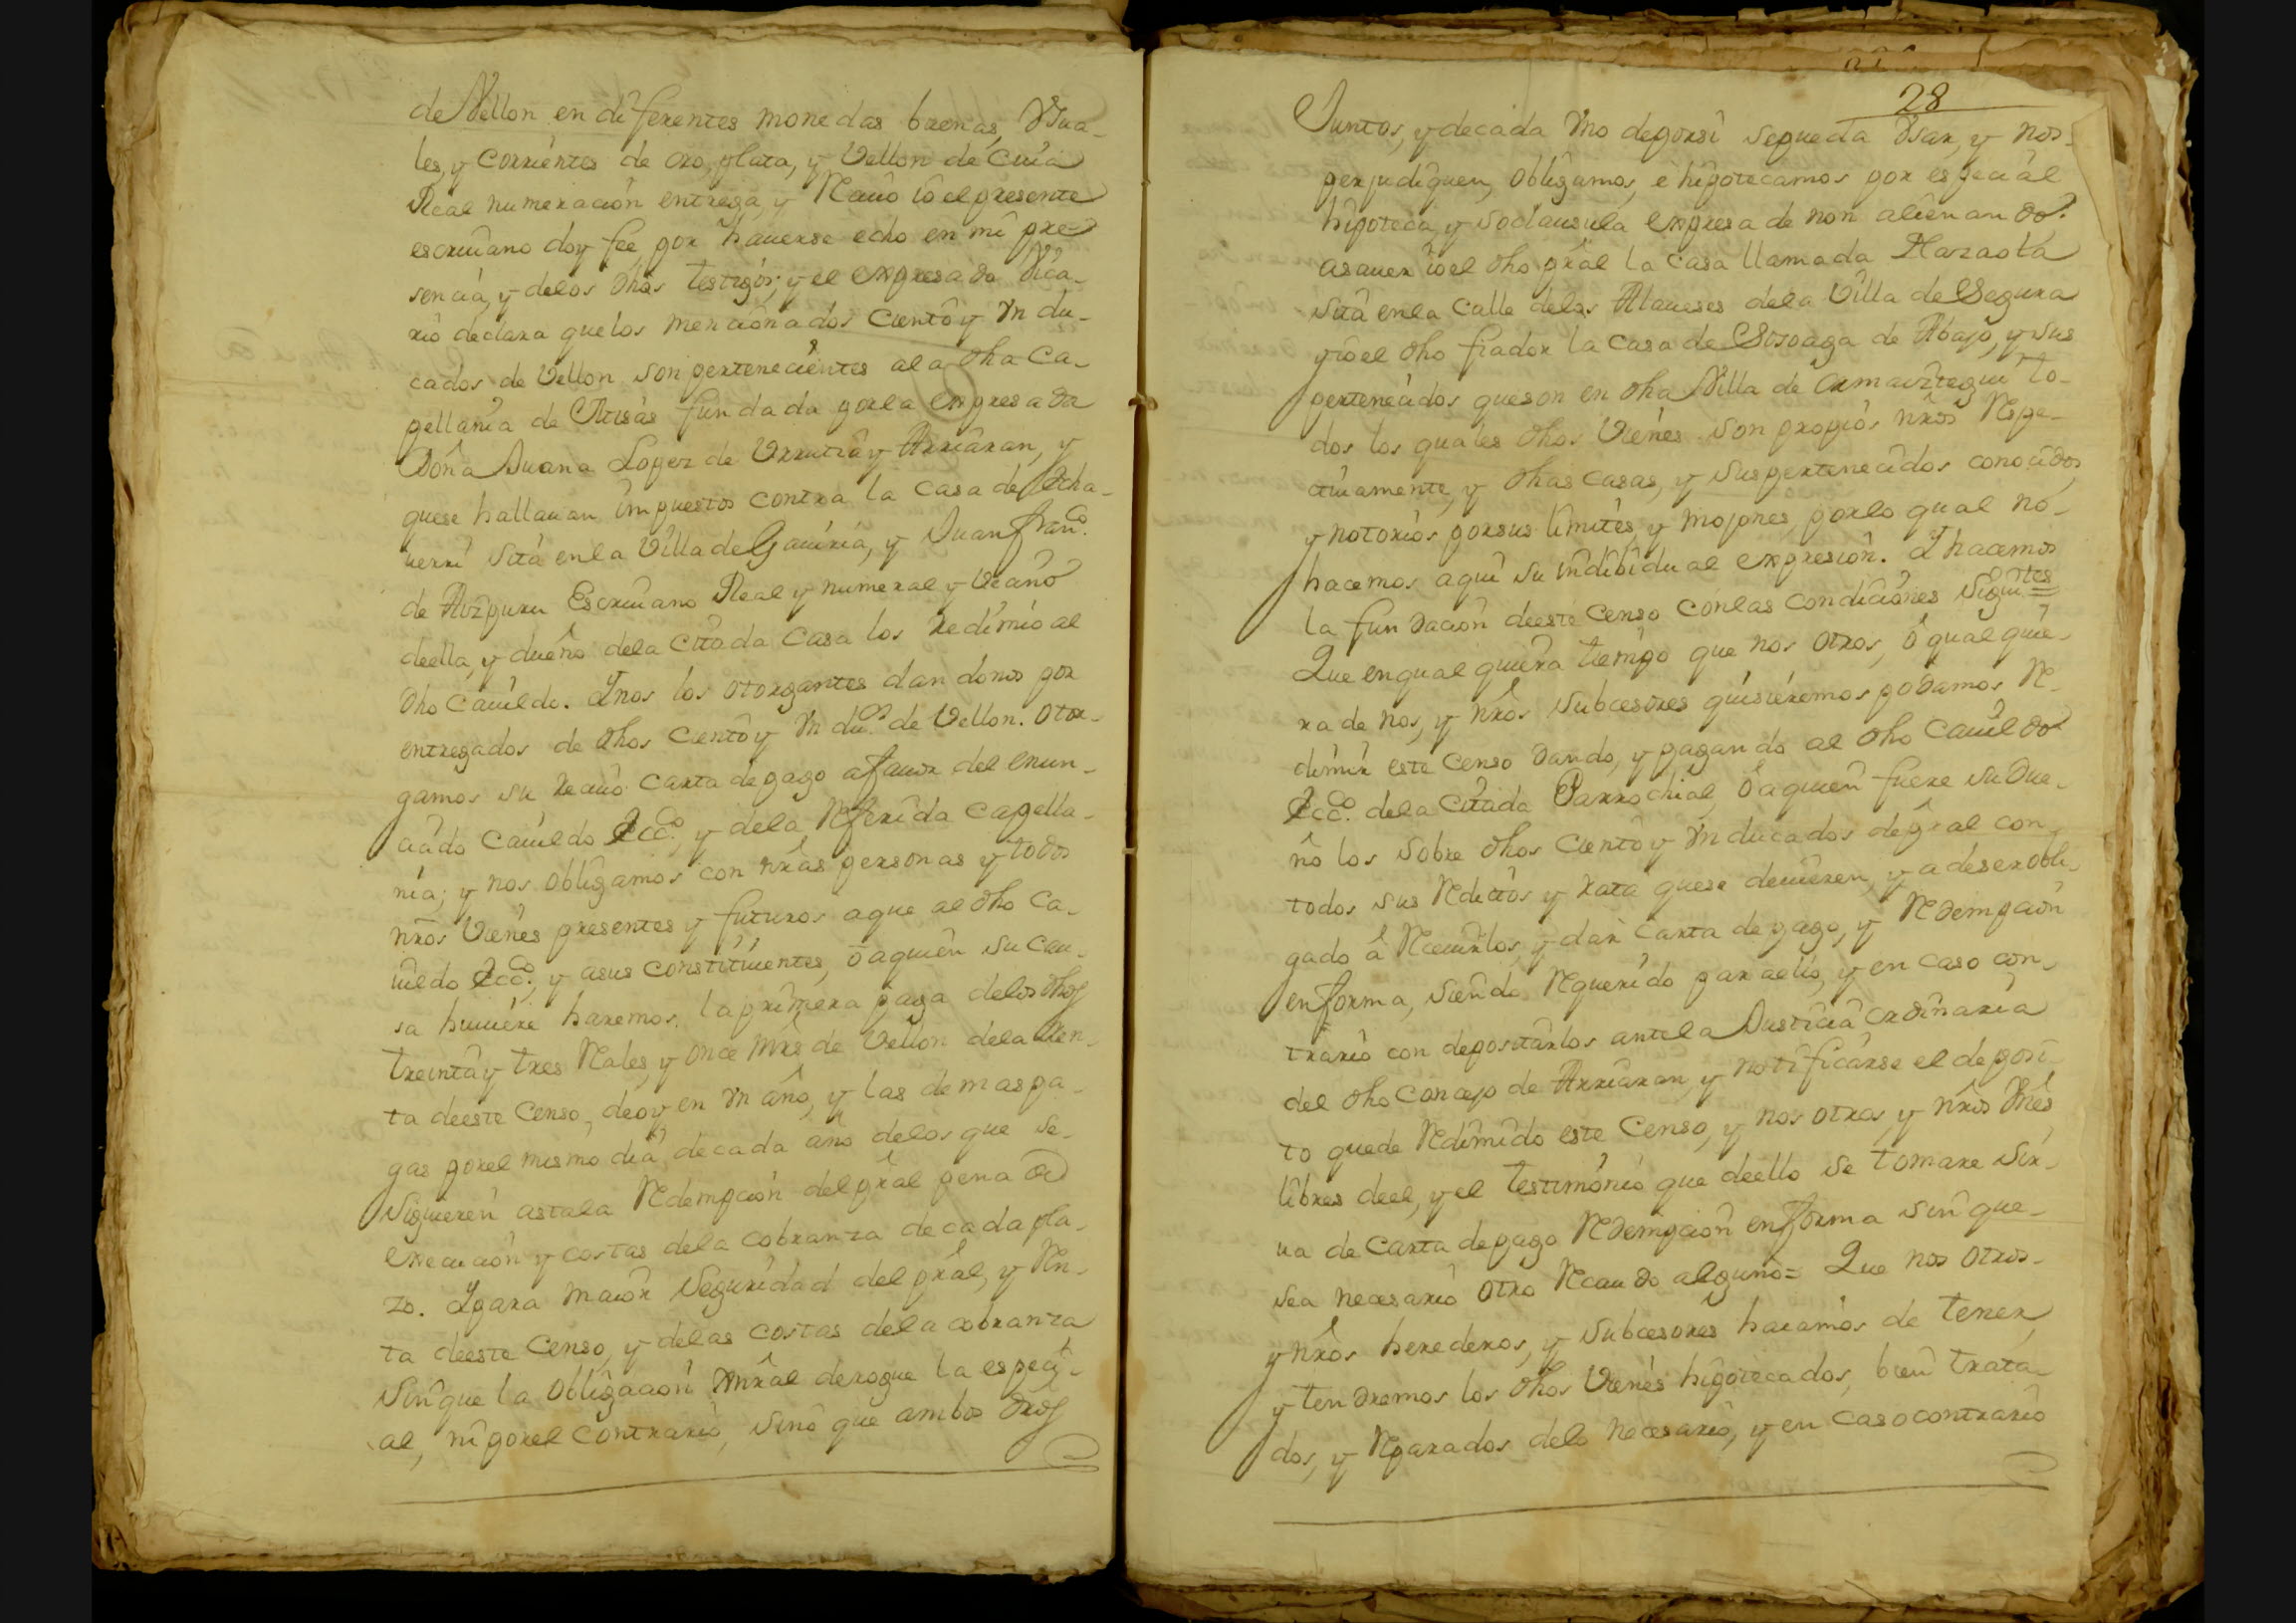 de Vellon en diferentes monedas buenas, Vsua-
les, y corrientes de oro, plata, y Vellon de cuia
Real numeracion entrega, y Reciuo io el presente
escriuano doy fee, por hauerse echo en mi pre-
sencia, y delos dhos testigos; y el expresado Vica-
rio declara quelos mencionados ciento y Vn du-
cados de Vellon son pertenecientes ala dha Ca-
pellania de Misas fundada porla expresada
Doña Juana Lopez de Vrrutia y Arriaran, y
quese hallauan impuestos contra la casa de Echa-
uerri sita enla Villa de Gauiria, y Juan Franco.
de Aizpuru Escriuano Real y numeral y Vecino
deella, y dueño dela citada casa los redimio al
dho Cauildo. I nos los otorgantes dandonos por
entregados de dhos ciento y Vn dus. de Vellon. otor-
gamos su reciuo carta de pago afauor del enun-
ciado Cauildo Ecco., y dela Referida capella-
nia; y nos obligamos con nras personas y todos
nros Vienes presentes y futuros aque al dho Ca-
uildo Ecco., y asus constituientes, ò aquien su cau-
sa huuiere haremos la primera paga delos dhos
treinta y tres Rales, y once mrs de Vellon dela Ren-
ta deeste Censo, deoy en Vn año, y las demas pa-
gas porel mismo dia, decada año delos que se
siguieren asta la Redempcion del pral pena de
execucion y costas dela cobranza decada pla-
zo. I para maior Seguridad del pral, y Ren-
ta deeste Censo, y delas costas dela cobranza
sin que la obligacion Gnral derogue la especi-
al, ni porel contrario, sino que ambos dros
28
Juntos, y decada Vno deporsi sepueda Vsar, y nos
perjudiquen, obligamos, è hipotecamos por especial
hipoteca, y soclausula expresa de non alienando.
asauer io el dho pral la casa llamada
sita enla calle delos Alaueses dela Villa de Segura
y io el dho fiador la casa de de Abajo, y sus
pertenecidos queson en dha Villa de Ormaiztegui to-
dos los quales dhos Vienes son propios nros Respe-
ctiuamente, y dhas casas, y suspertenecidos conocidos,
y notorios porsus limites, y mojones, porlo qual no
hacemos aqui su indibidual expresion. I hacemos
la fundacion deeste Censo conlas condiciones Siguites=
Que enqualquiera tiempo que nos otros, ò qualquie-
ra de nos, y nros subcesores quisieremos podamos Re-
dimir este Censo dando, y pagando al dho Cauildo
Ecco. dela citada Parrochial, ò aquien fuere su Due-
ño los sobre dhos ciento y Vn ducados depral con
todos sus Reditos y rata quese deuieren, y adeser obli-
gado à Reciuirlos, y dar carta de pago, y Redempcion
enforma, siendo Requerido paraello, y en caso con-
trario con depositarlos antela Justicia ordinaria
del dho Concejo de Arriaran, y notificarse el deposi
to quede Redimido este Censo, y nos otros, y nros Vnes
libres deel, y el testimonio que deello se tomare sir-
ua de carta depago Redempcion enforma sin que
sea necesario otro Recaudo alguno= Que nos otros
y nros herederos, y subcesores haiamos de tener,
y tendremos los dhos Vienes hipotecados, bien trata-
dos, y Reparados delo necesario, y en caso contrario